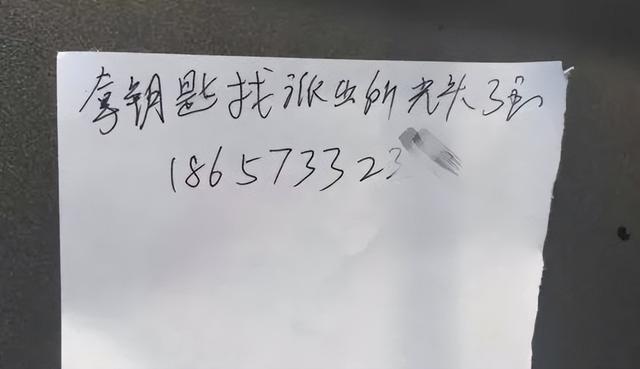 拿钥匙找派出所光头强
1865733 23